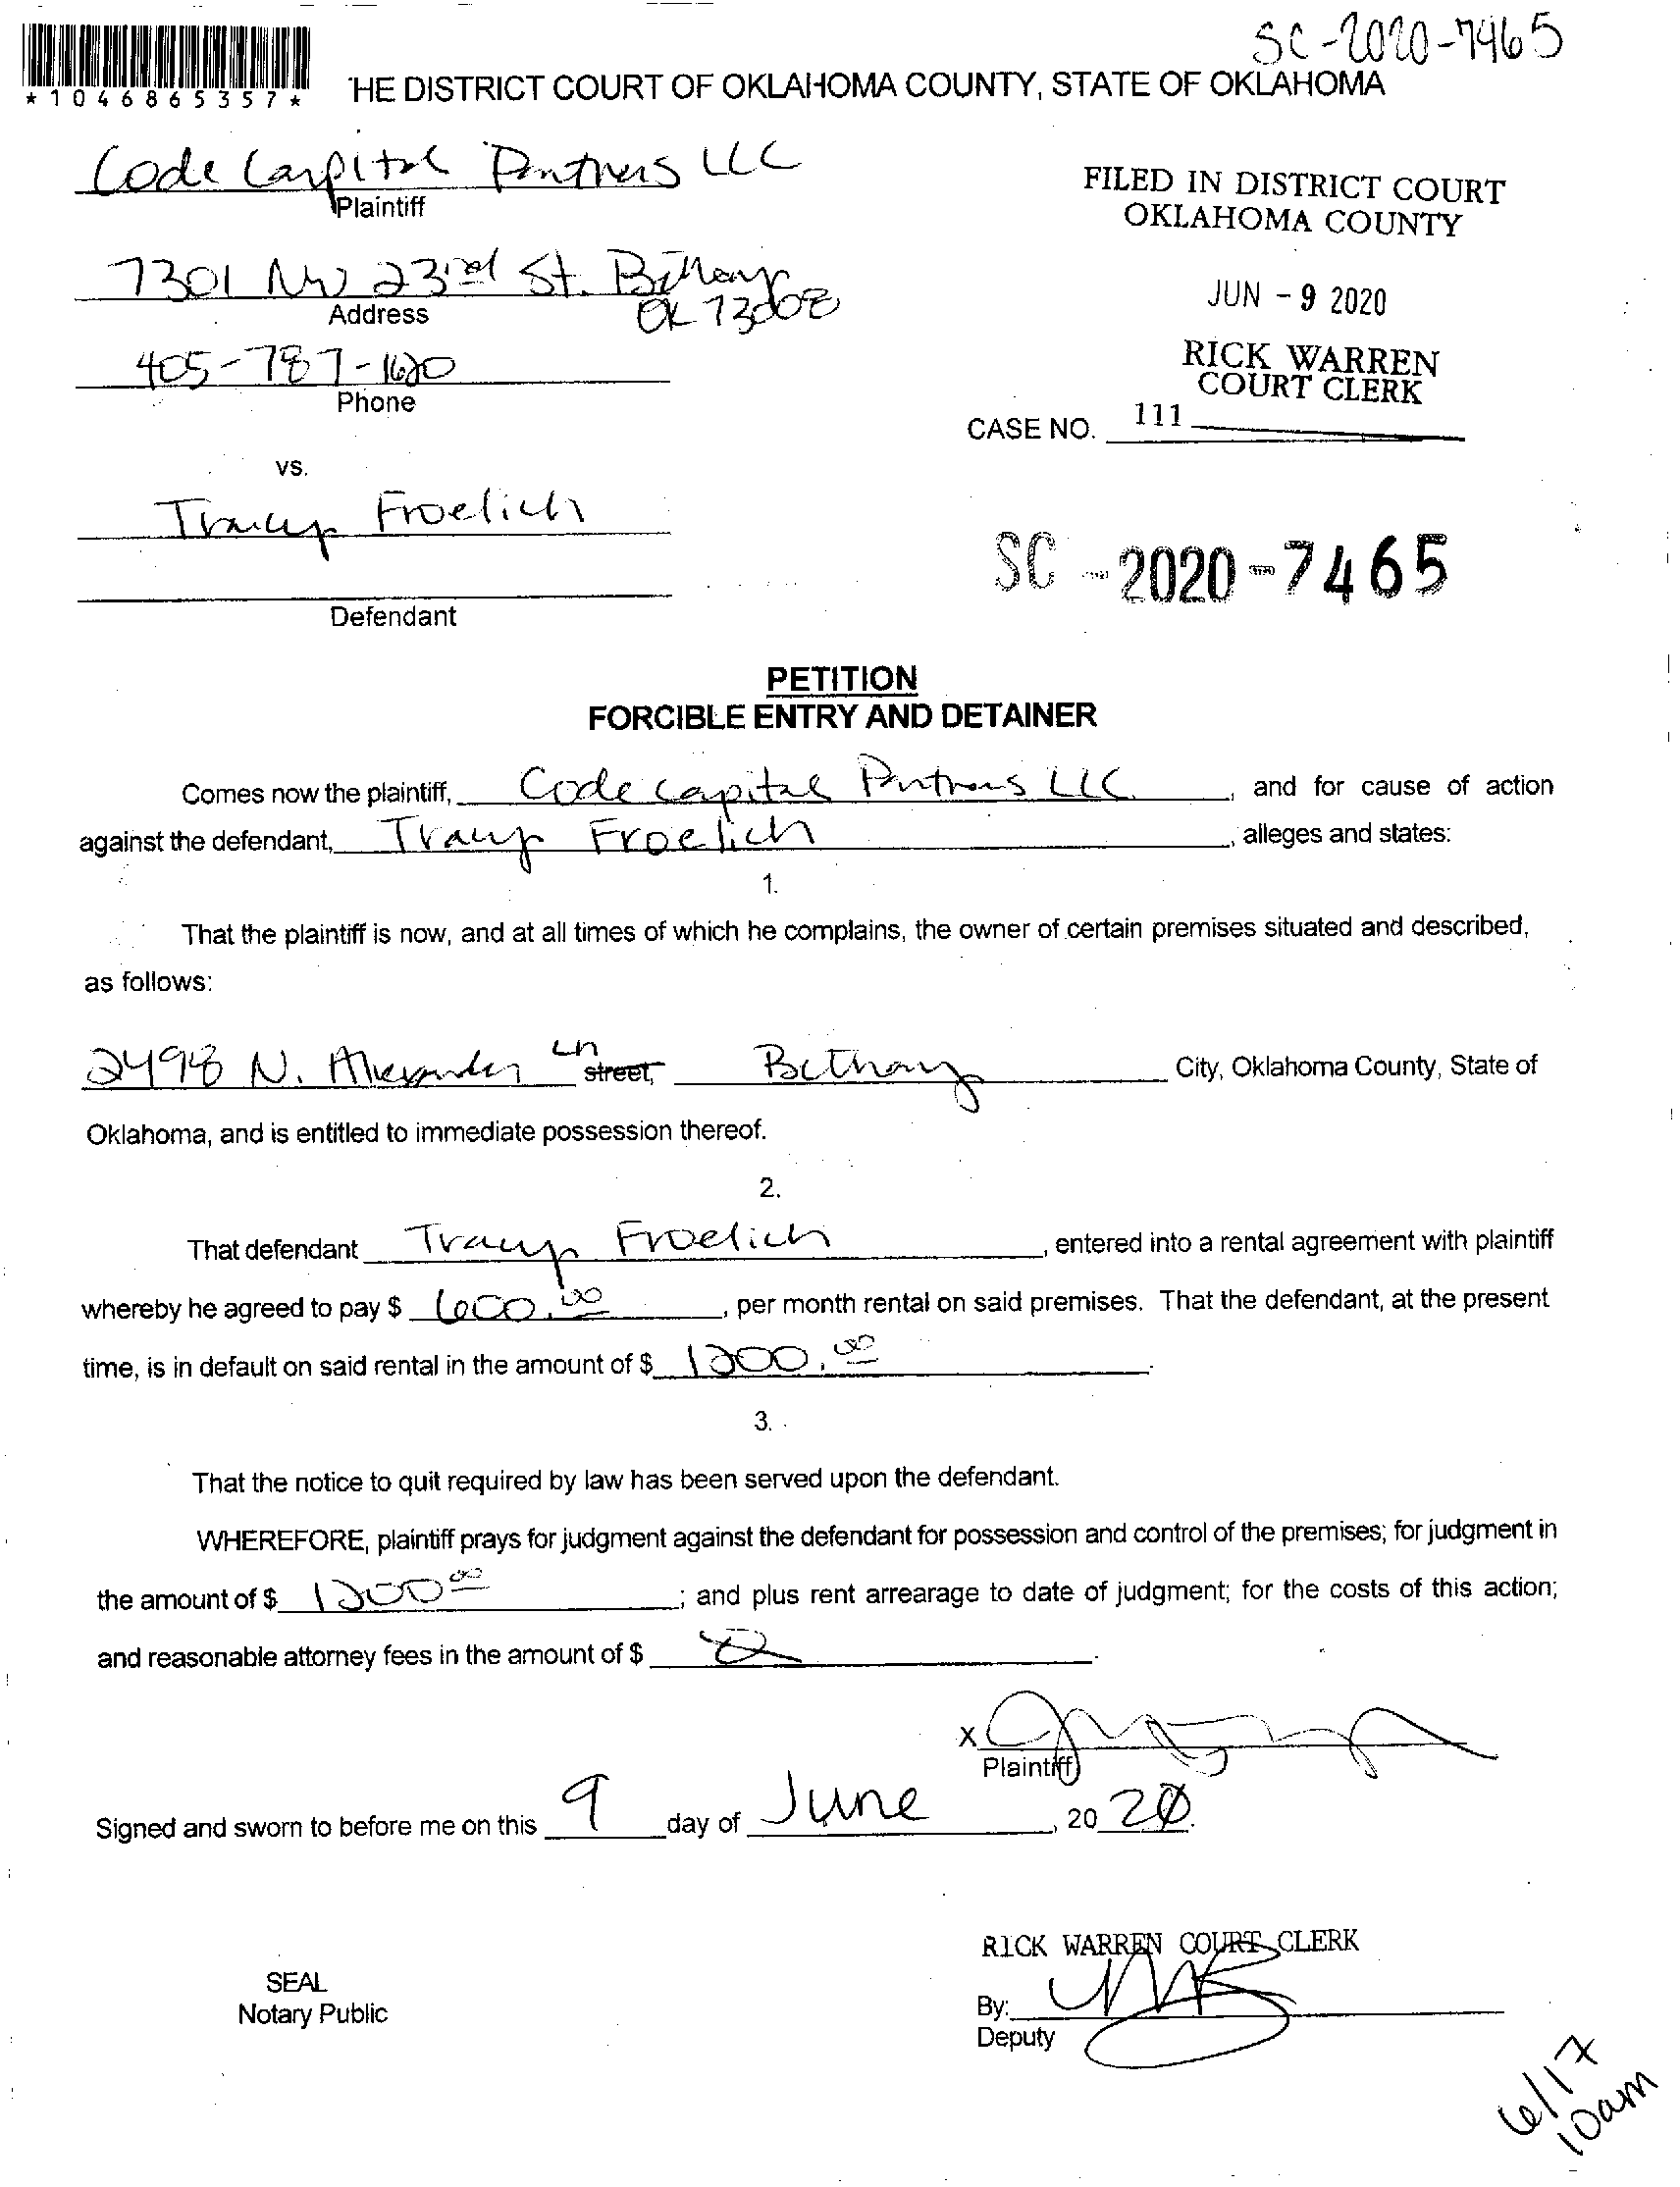 SC-2020-7465
*1046865357*
'HE DISTRICT COURT OF OKLAHOMA COUNTY, STATE OF OKLAHOMA
Code Capital Partners LLC
Plaintiff
FILED IN DISTRICT COURT
OKLAHOMA COUNTY
7301 NW 23rd St. Bethany
OK 73008
Address
JUN - 9 2020
405-787-1620
Phone
RICK WARREN
COURT CLERK
CASE NO. 111
vs.
Tracy Froelich
SC -2020-7465
Defendant
PETITION
FORCIBLE ENTRY AND DETAINER
Comes now the plaintiff, Code Capital Partners LLC, and for cause of action
against the defendant, Tracy Froelich, alleges and states:
1.
That the plaintiff is now, and at all times of which he complains, the owner of certain premises situated and described,
as follows:
2498 N. Alexander Ln street, Bethany City, Oklahoma County, State of
Oklahoma, and is entitled to immediate possession thereof.
2.
That defendant Tracy Froelich, entered into a rental agreement with plaintiff
whereby he agreed to pay $ 600.00, per month rental on said premises. That the defendant, at the present
time, is in default on said rental in the amount of $ 1200.00.
3.
That the notice to quit required by law has been served upon the defendant.
WHEREFORE, plaintiff prays for judgment against the defendant for possession and control of the premises; for judgment in
the amount of $ 1200.00; and plus rent arrearage to date of judgment; for the costs of this action;
and reasonable attorney fees in the amount of $
X
Plaintiff
Signed and sworn to before me on this 9 day of June, 20 20.
RICK WARREN COURT CLERK
SEAL
Notary Public
By:
Deputy
6/17
10am